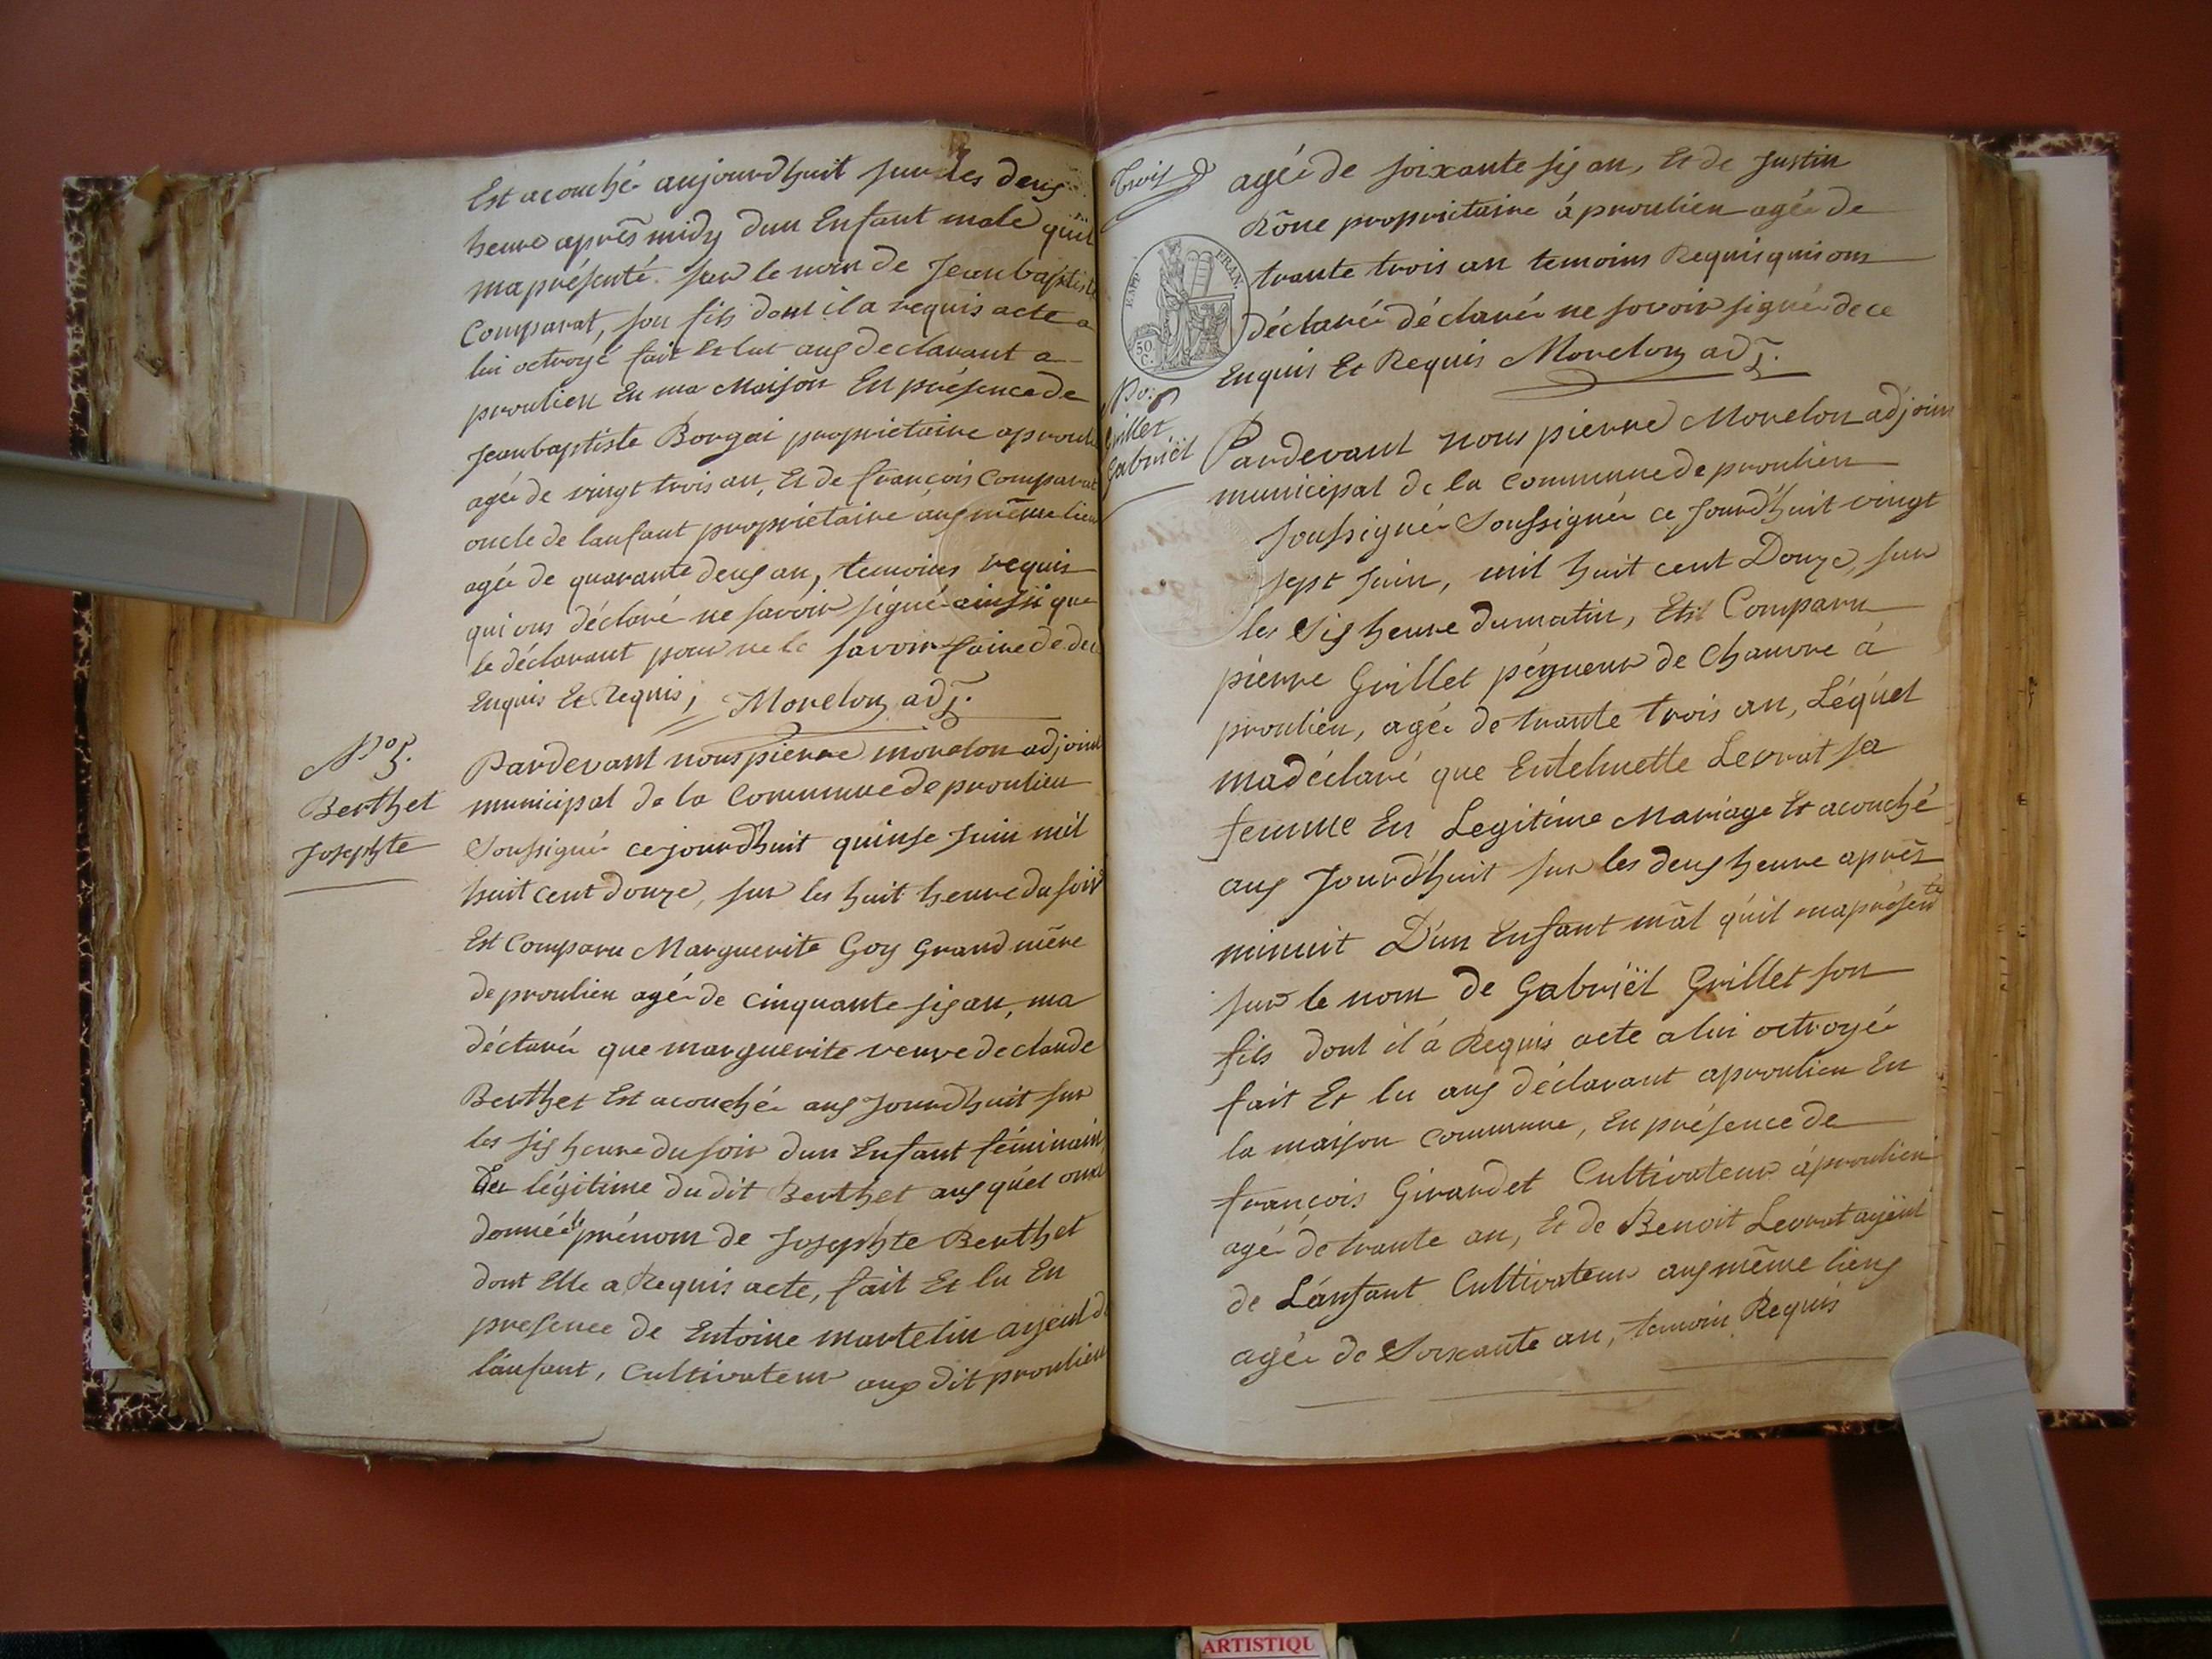 Est acouché aujourdhuit sur les deus
heure après midy dun Enfant male quil
ma présenté sur le nom de Jean baptiste
Comparat, son fils dont il a requis acte a
lui octroyé fait Et lut aus declarant a
proulieu En ma Maison En présence de
Jeanbaptiste Borgai propriétaire a proulieu
agée de vingt trois an, Et de françois Comparat
oncle de lanfant propriétaire aus même lieu
agée de quarante deus an, temoins requis
qui ons déclaré ne savoir signé ainsii que
le déclarant pour ne le savoir faire de
Enquis Et Requis; Morelon adj.
No 5.
Berthet
Josephte
Pardevant nous pierre morelon adjoint
municipal de la Commune de proulieu
Soussigné cejourdhuit quinse Juin mil
huit cent douze, sur les huit heure du soir
Est Comparu Marguerite Goy Grand mère
de proulieu agée de Cinquante sis an, ma
déclaré que marguerite veuve de claude
Berthet Est acouchée aus Jourdhuit sur
les sis heure du soir dun Enfant féminain
légitime du dit Berthet aus quél
donnée le prénom de Josephte Berthet
dont Elle a Requis acte, fait Et lu En
presence de Entoine martelin aiyeul de
lánfant, Cultivateur aus dit proulieu
trois
agée de soixante sis an, Et de Justin
Rône propriétaire à proulieu agée de
EMP. FRAN.
50 C.
trante trois an temoins Requis qui ons
déclaré déclaré ne sovoir signée de ce
Enquis Et Requis Morelon adj.
No. 6
Grillet
Gabriël
Pardevant nous pierre Morelon adjoint
municipal de la Commune de proulieu
soussignée Soussignée ce Jourd'huit vingt
sept Juin, mil huit cent Douze, sur
les Sis heure du matin, Est Comparu
pierre Grillet pégneur de Chanvre à
proulieu, agée de trante trois an, Léquel
ma déclaré que Entelmette Levrat sa
femme En Legitime Mariage Et acouché
aus Jourd'huit sur les deus heure après
minuit D'un Enfant mâl qúil ma présenté
sur le nom de Gabriël Grillet son
fils dont il à Requis acte a lui octroyée
fait Et lu aus déclarant a proulieu En
la maison Commune, En présence de
françois Girardet Cultivateur à proulieu
agée de trante an, Et de Benoit Levrat ayeul
de Lánfant Cultivateur aus même lieus
agée de Soixante an, temoin Requis
ARTISTIQU